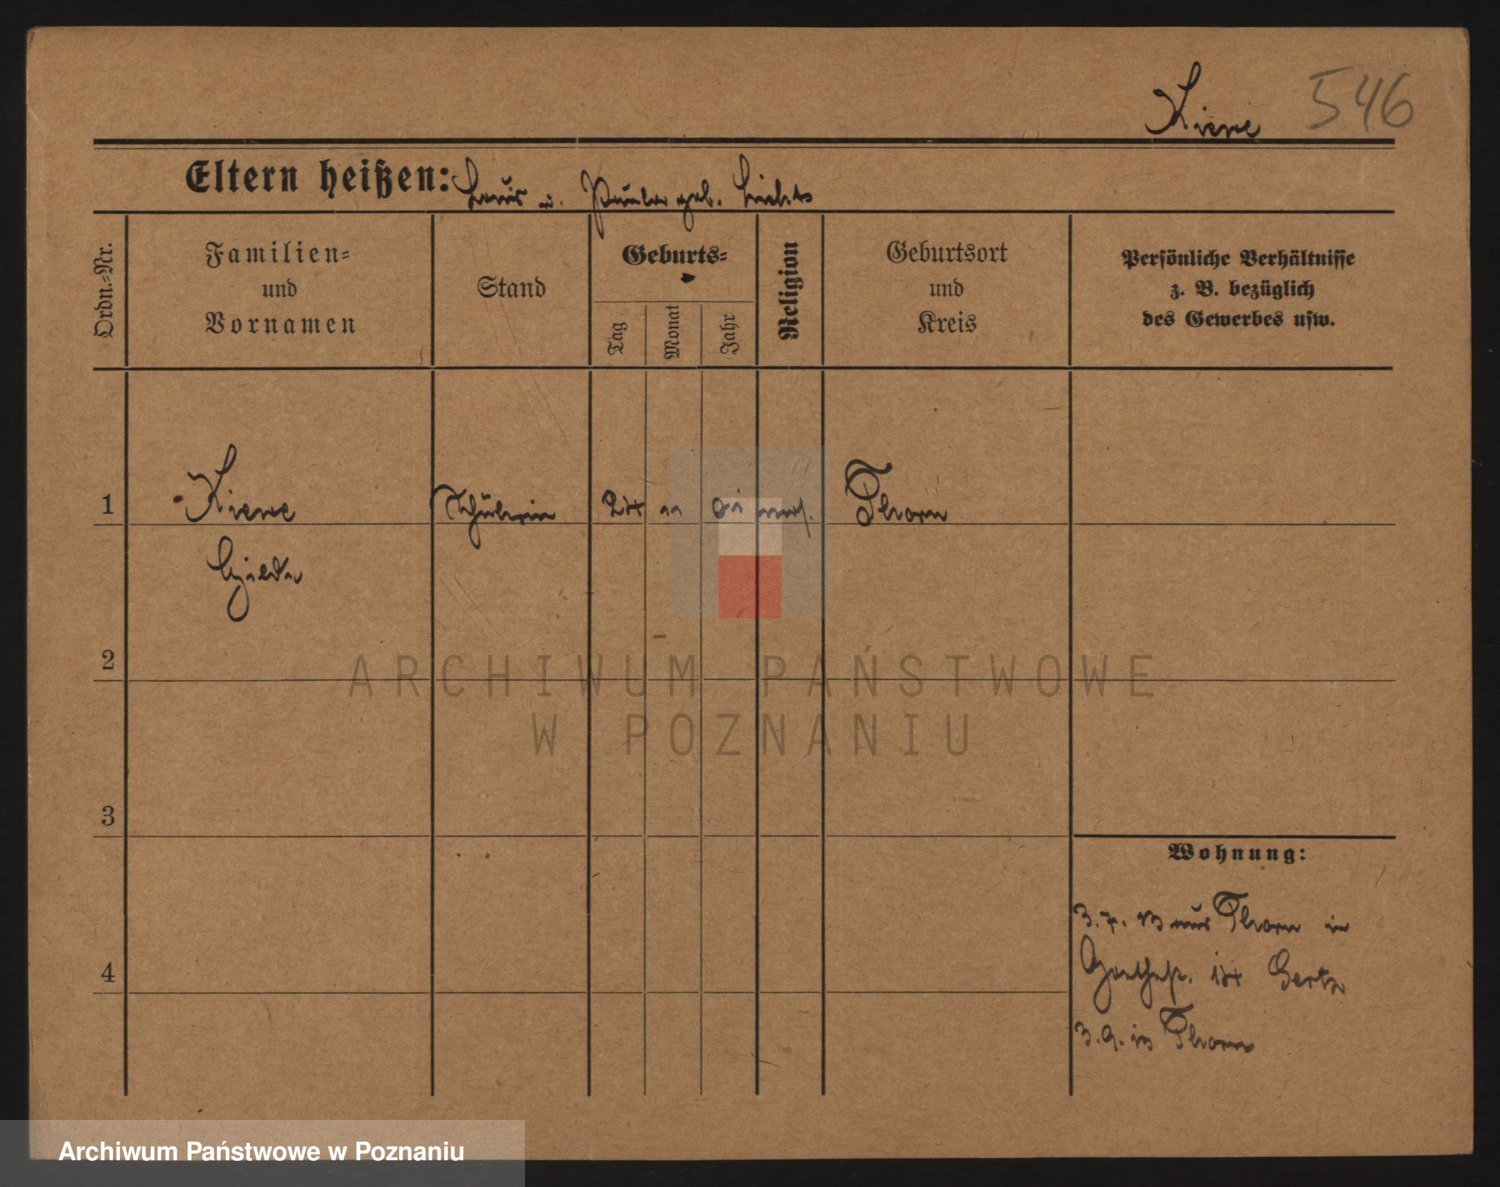 Kiewe 546
Eltern heißen: Louis u. Paula geb.
Ordn.-Nr.
Familien-
und
Vornamen
Stand
Geburts-
Tag
Monat
Jahr
Religion
Geburtsort
und
Kreis
Persönliche Verhältnisse
z. B. bezüglich
des Gewerbes usw.
1 Kiewe Schülerin 24 11 01 mos. Thorn
2
3
4
Wohnung:
3.7. 13 aus Thorn in
Goethestr. Gertz
3.9. in Thorn
ARCHIWUM PAŃSTWOWE
W POZNANIU
Archiwum Państwowe w Poznaniu